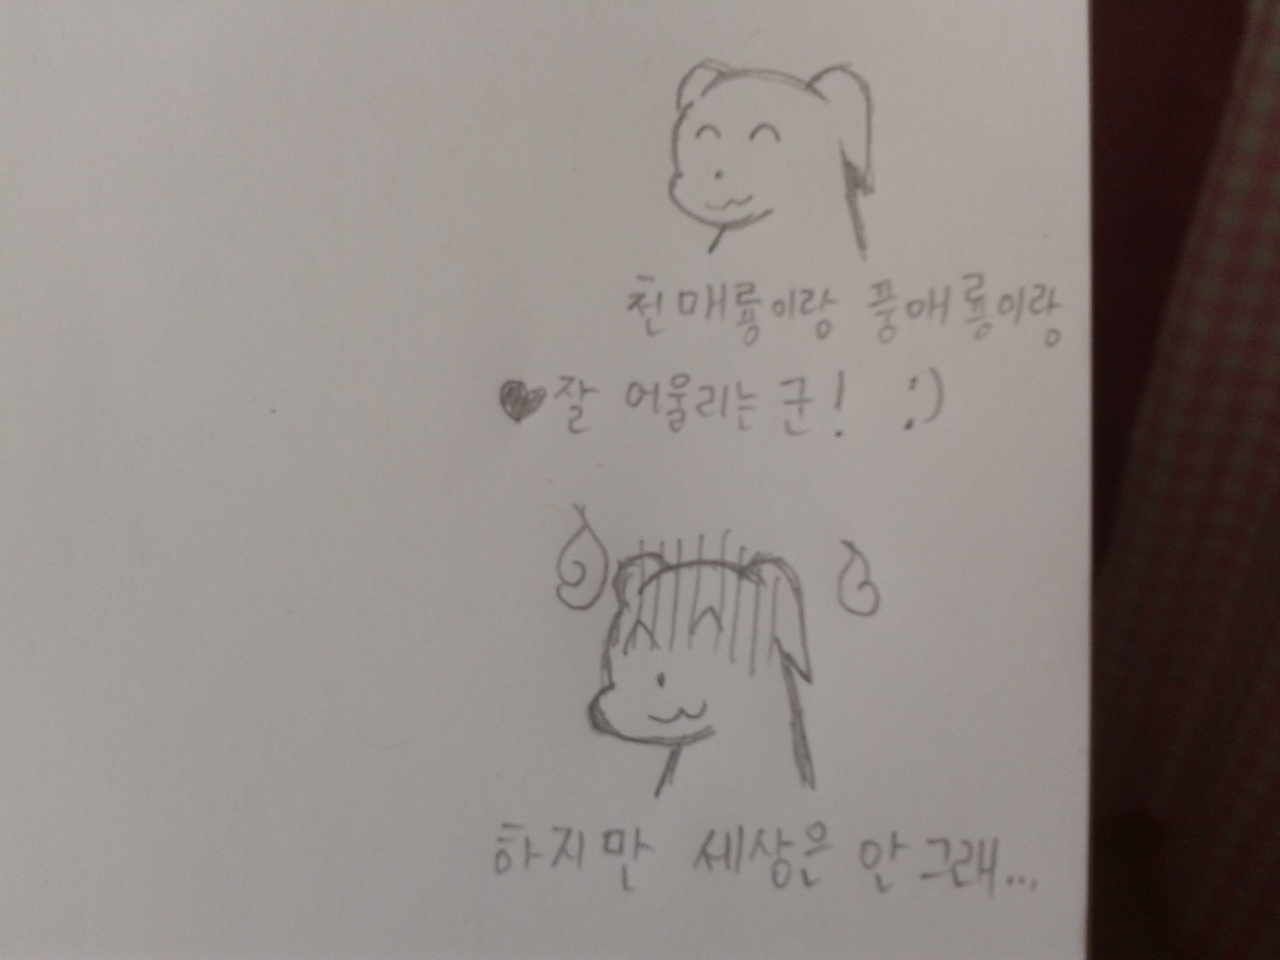 천매룡이랑 풍애룡이랑
♥잘 어울리는군! :)
하지만 세상은 안그래...